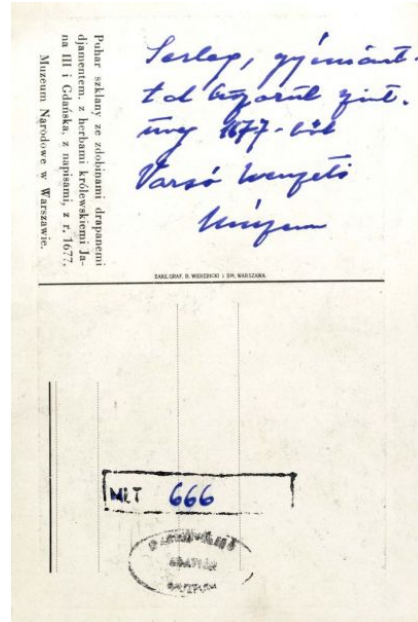 Puhar szklany ze zdobinami drapanemi
djamentem, z herbami królewskiemi Ja-
na III i Gdańska, z napisami, z r. 1677.
Muzeum Narodowe w Warszawie.
Serleg, gyémánt-
üveg 1677-ből
Varsó Nemzeti
Múzeum
ZAKŁ. GRAF. B. WIERZBICKI I S-KA, WARSZAWA
NLT 666